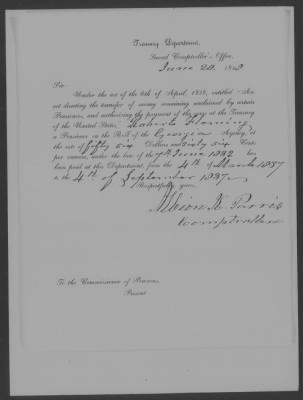 Treasury Department,
Second Comptroller's Office,
June 20. 184
Sir:
Under the act of the 6th of April, 1838, entitled "An
act directing the transfer of money remaining unclaimed by certain
Pensioners, and authorizing the payment of the same at the Treasury
of the United States," Robert Fleming
a Pensioner on the Roll of the Georgia Agency, at
the rate of fifty six Dollars and sixty six Cents
per annum, under the law of the 7th June 1832 has
been paid at this Department, from the 4th of March 1837
to the 4th of September 1837.
Respectfully yours,
Albion K. Parris
Comptroller
To the Commissioner of Pensions,
Present